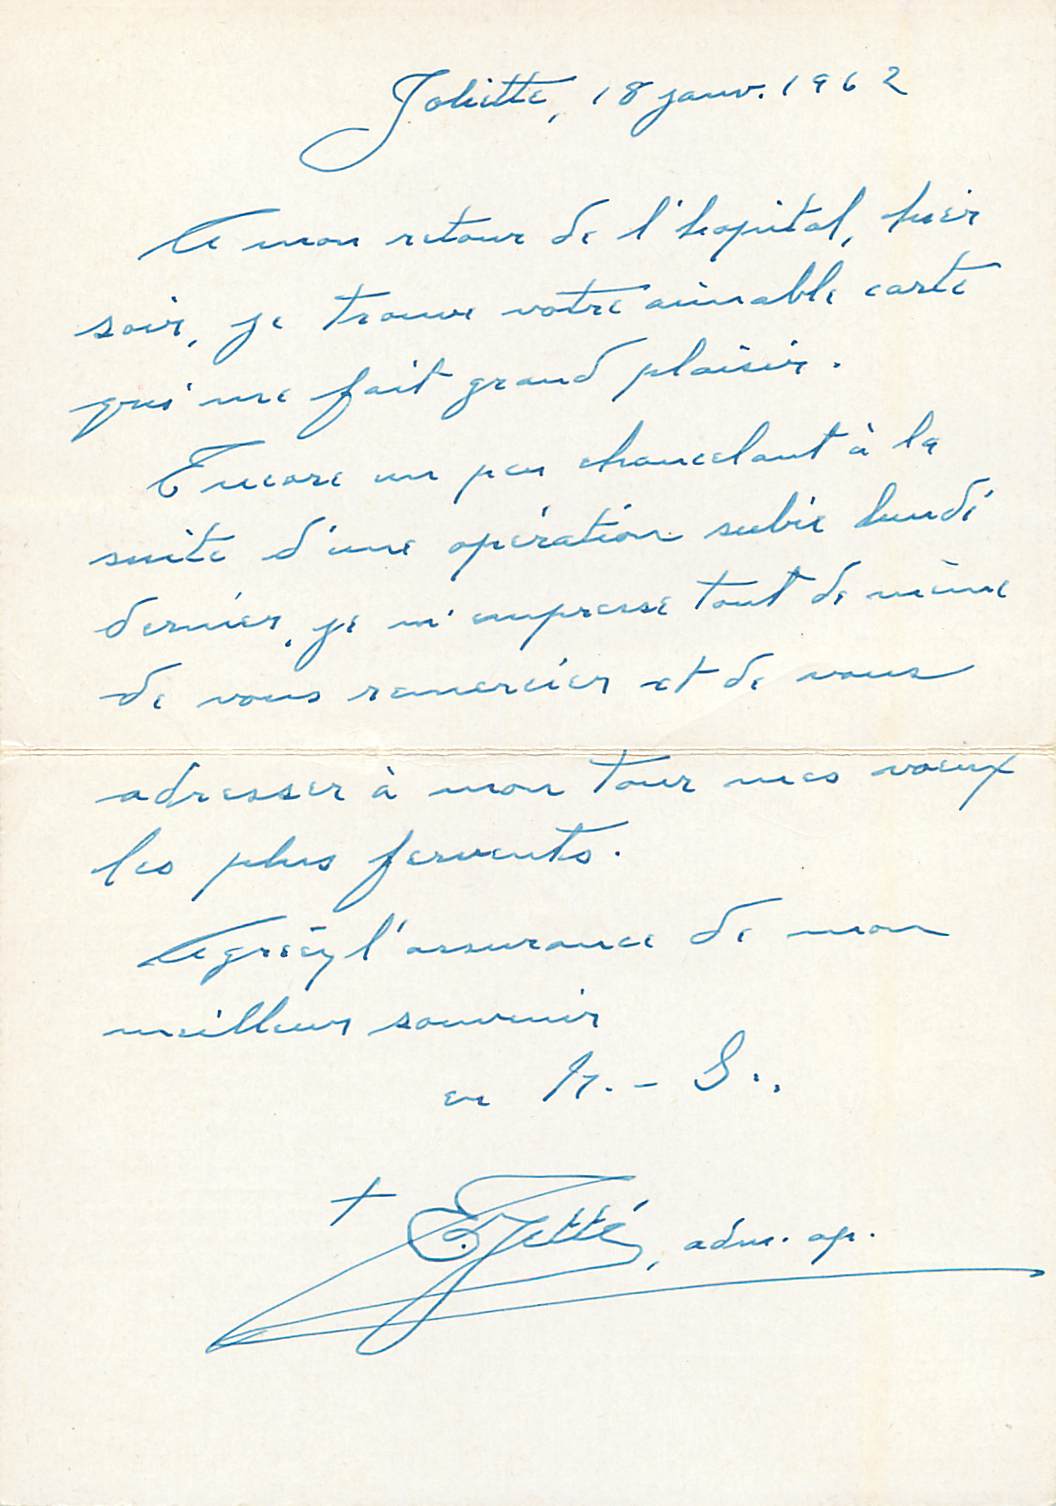 Joliette, 18 janv. 1962
A mon retour de l'hopital, hier
soir, je trouve votre aimable carte
qui me fait grand plaisir.
Encore un peu chancelant à la
suite d'une opération subie lundi
dernier, je m'empresse tout de même
de vous remercier et de vous
adresser à mon tour mes voeux
les plus fervents.
Agréez l'assurance de mon
meilleur souvenir
en N.-S.,
† E. Jetté, adm. ap.